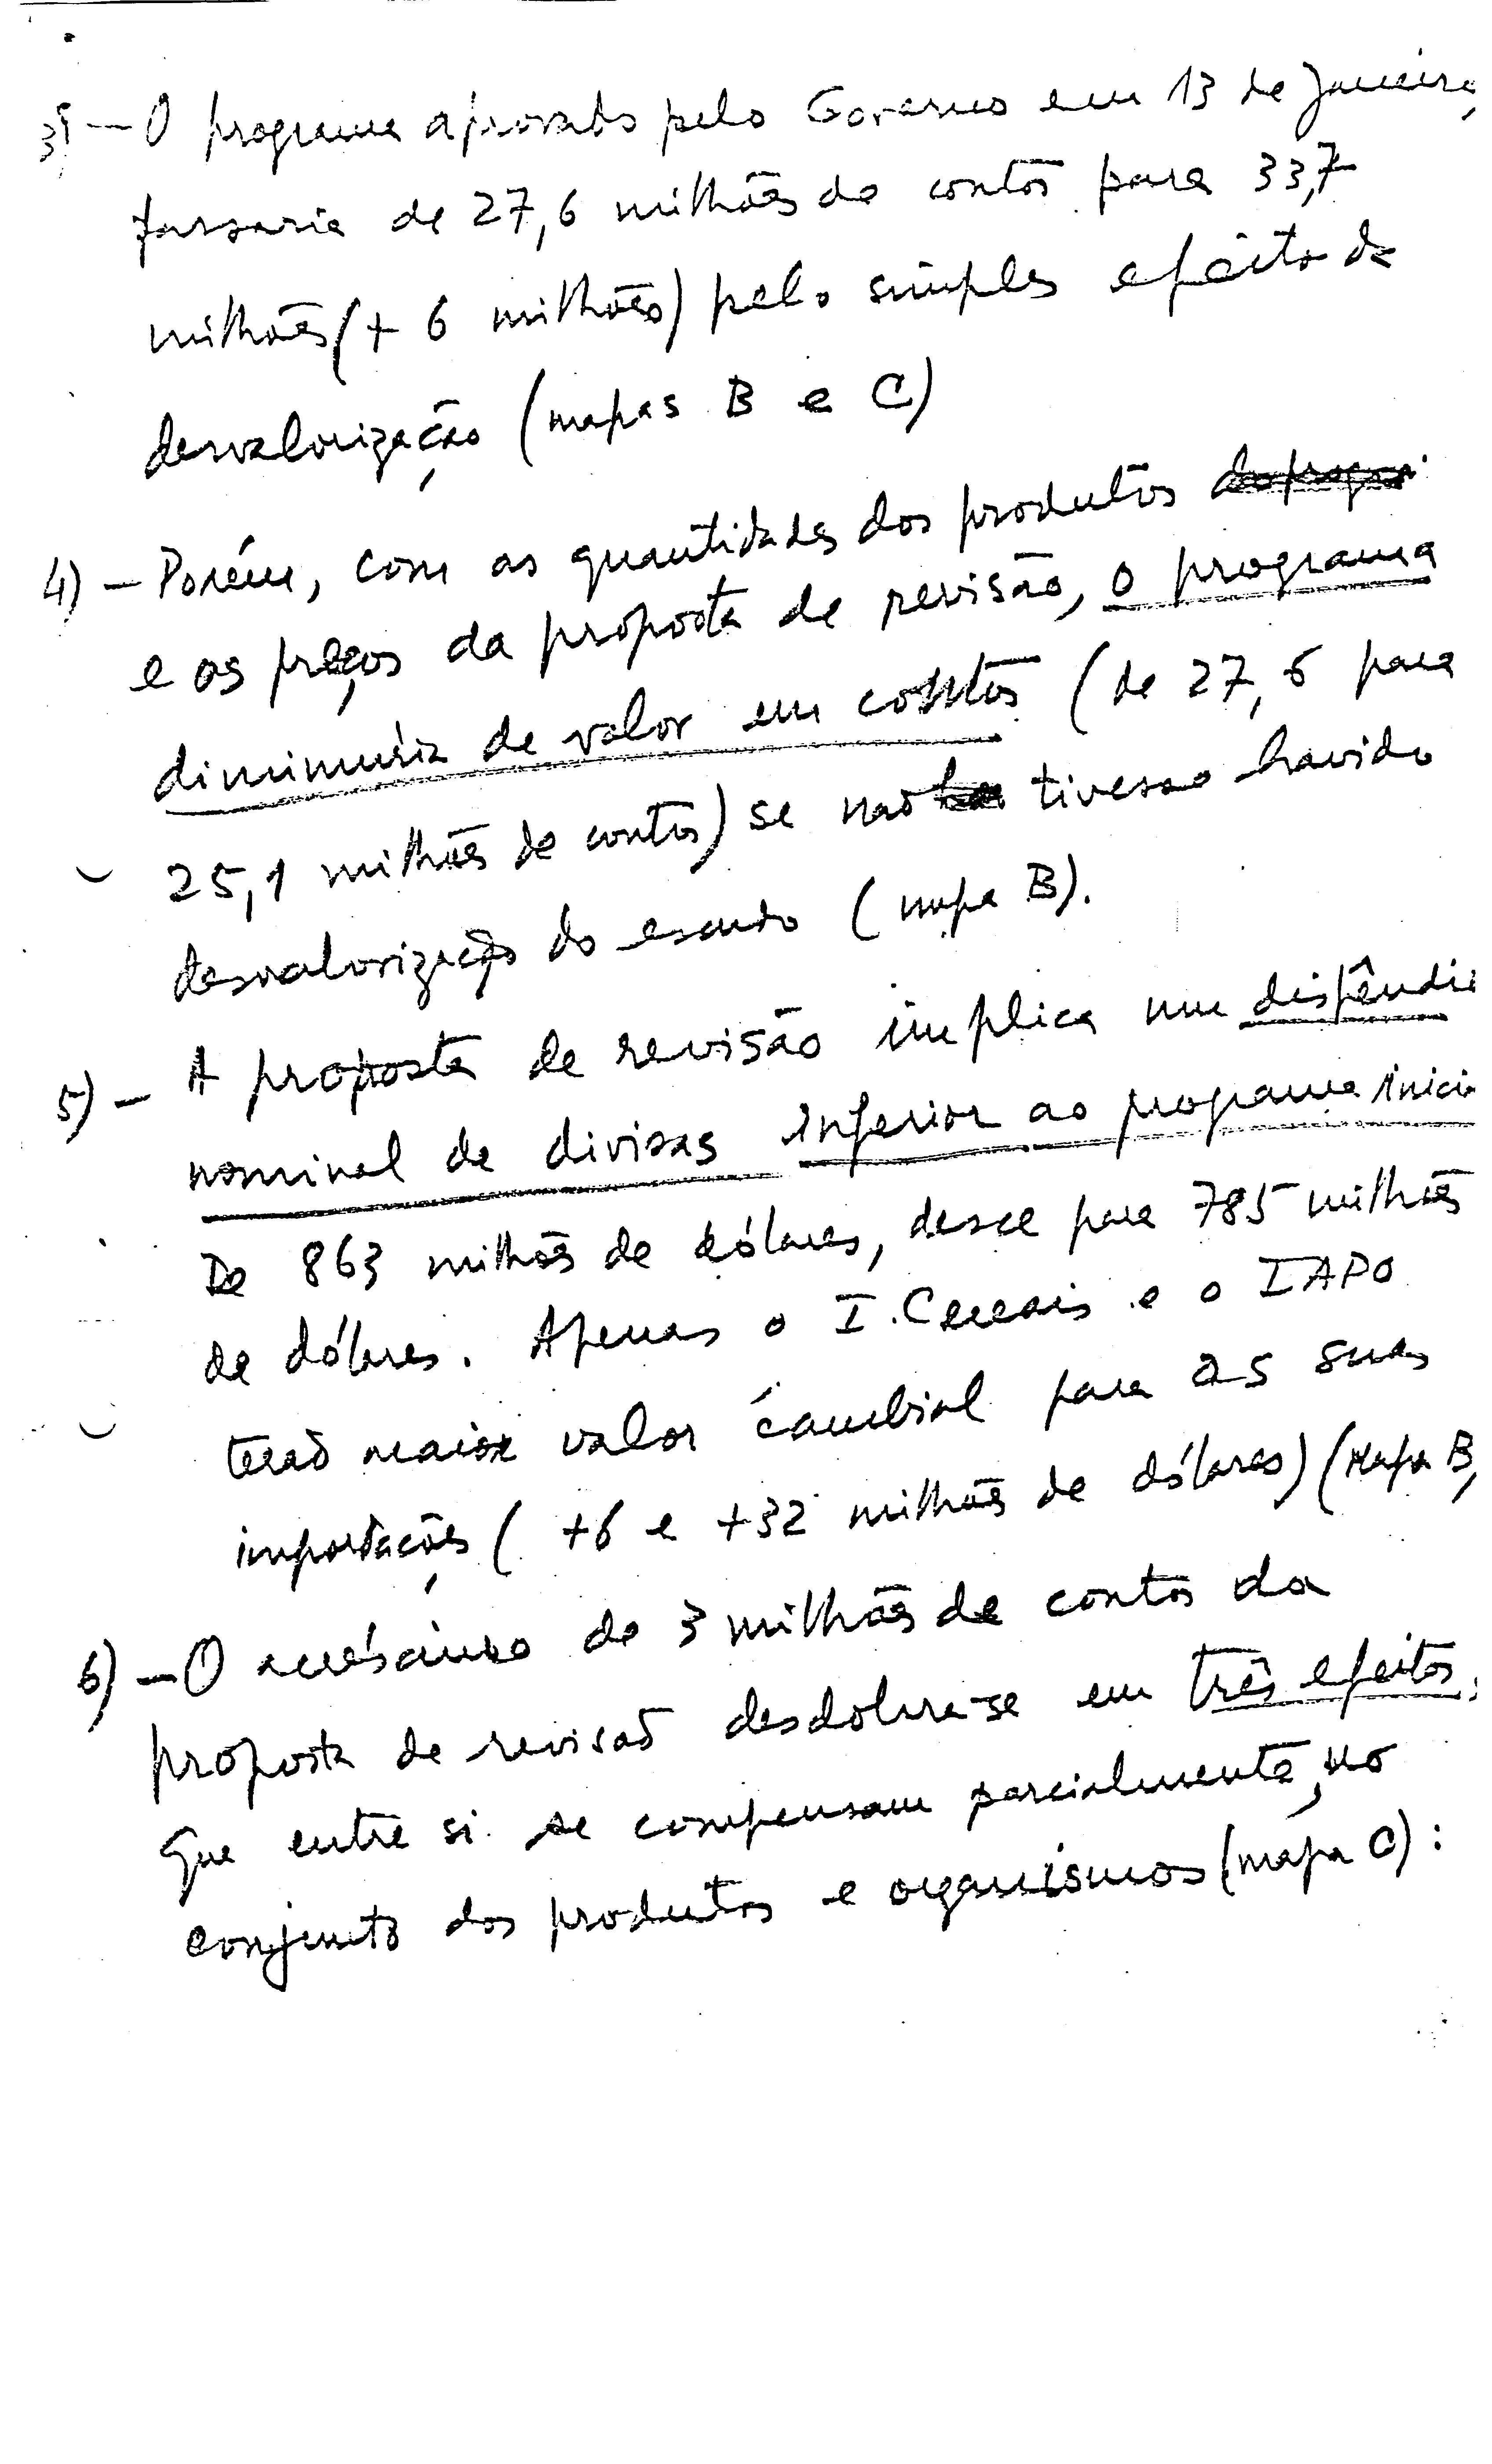 3) - O programa aprovado pelo Governo em 13 de Janeiro,
passaria de 27,6 milhões de contos para 33,7
milhões (+ 6 milhões) pelo simples efeito da
desvalorização (mapas B e C)
4) - Porém, com as quantidades dos produtos
e os preços da proposta de revisão, o programa
diminuiria de valor em contos (de 27,6 para
25,1 milhões de contos) se não tivesse havido
desvalorização do escudo (mapa B).
5) - A proposta de revisão implica um dispêndio
nominal de divisas inferior ao programa inicia
De 863 milhões de dólares, desce para 785 milhões
de dólares. Apenas o I. Cereais e o IAPO
terão maior valor cambial para as suas
importações ( +6 e +32 milhões de dólares) (Mapa B,
6) - O acréscimo de 3 milhões de contos da
proposta de revisão desdobra-se em três efeitos,
que entre si se compensam parcialmente, no
conjunto dos produtos e organismos (mapa C) :